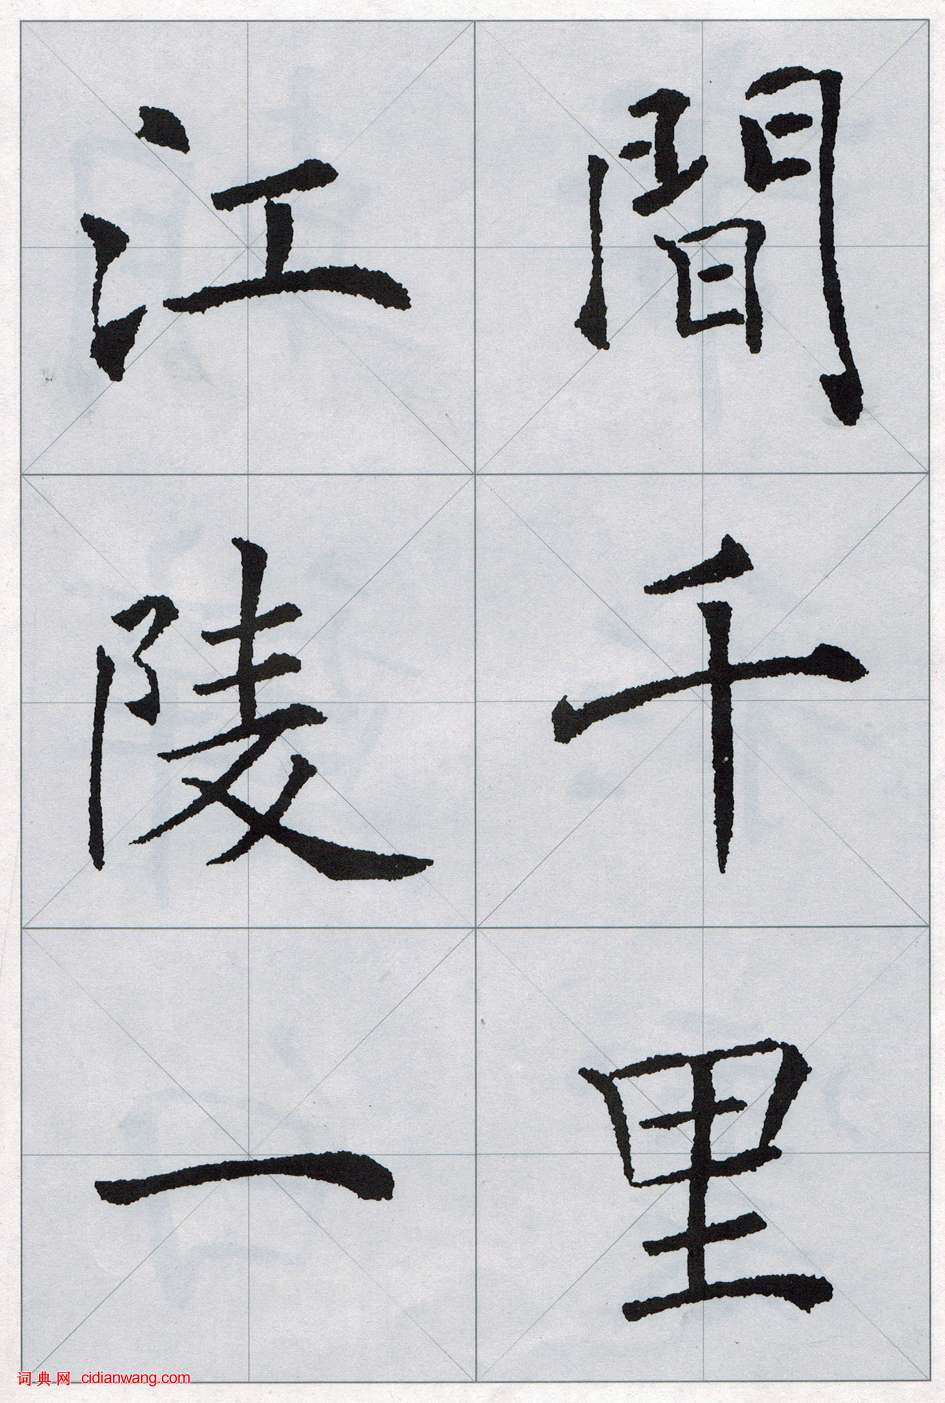 間千里
江陵一
词典网 cidianwang.com